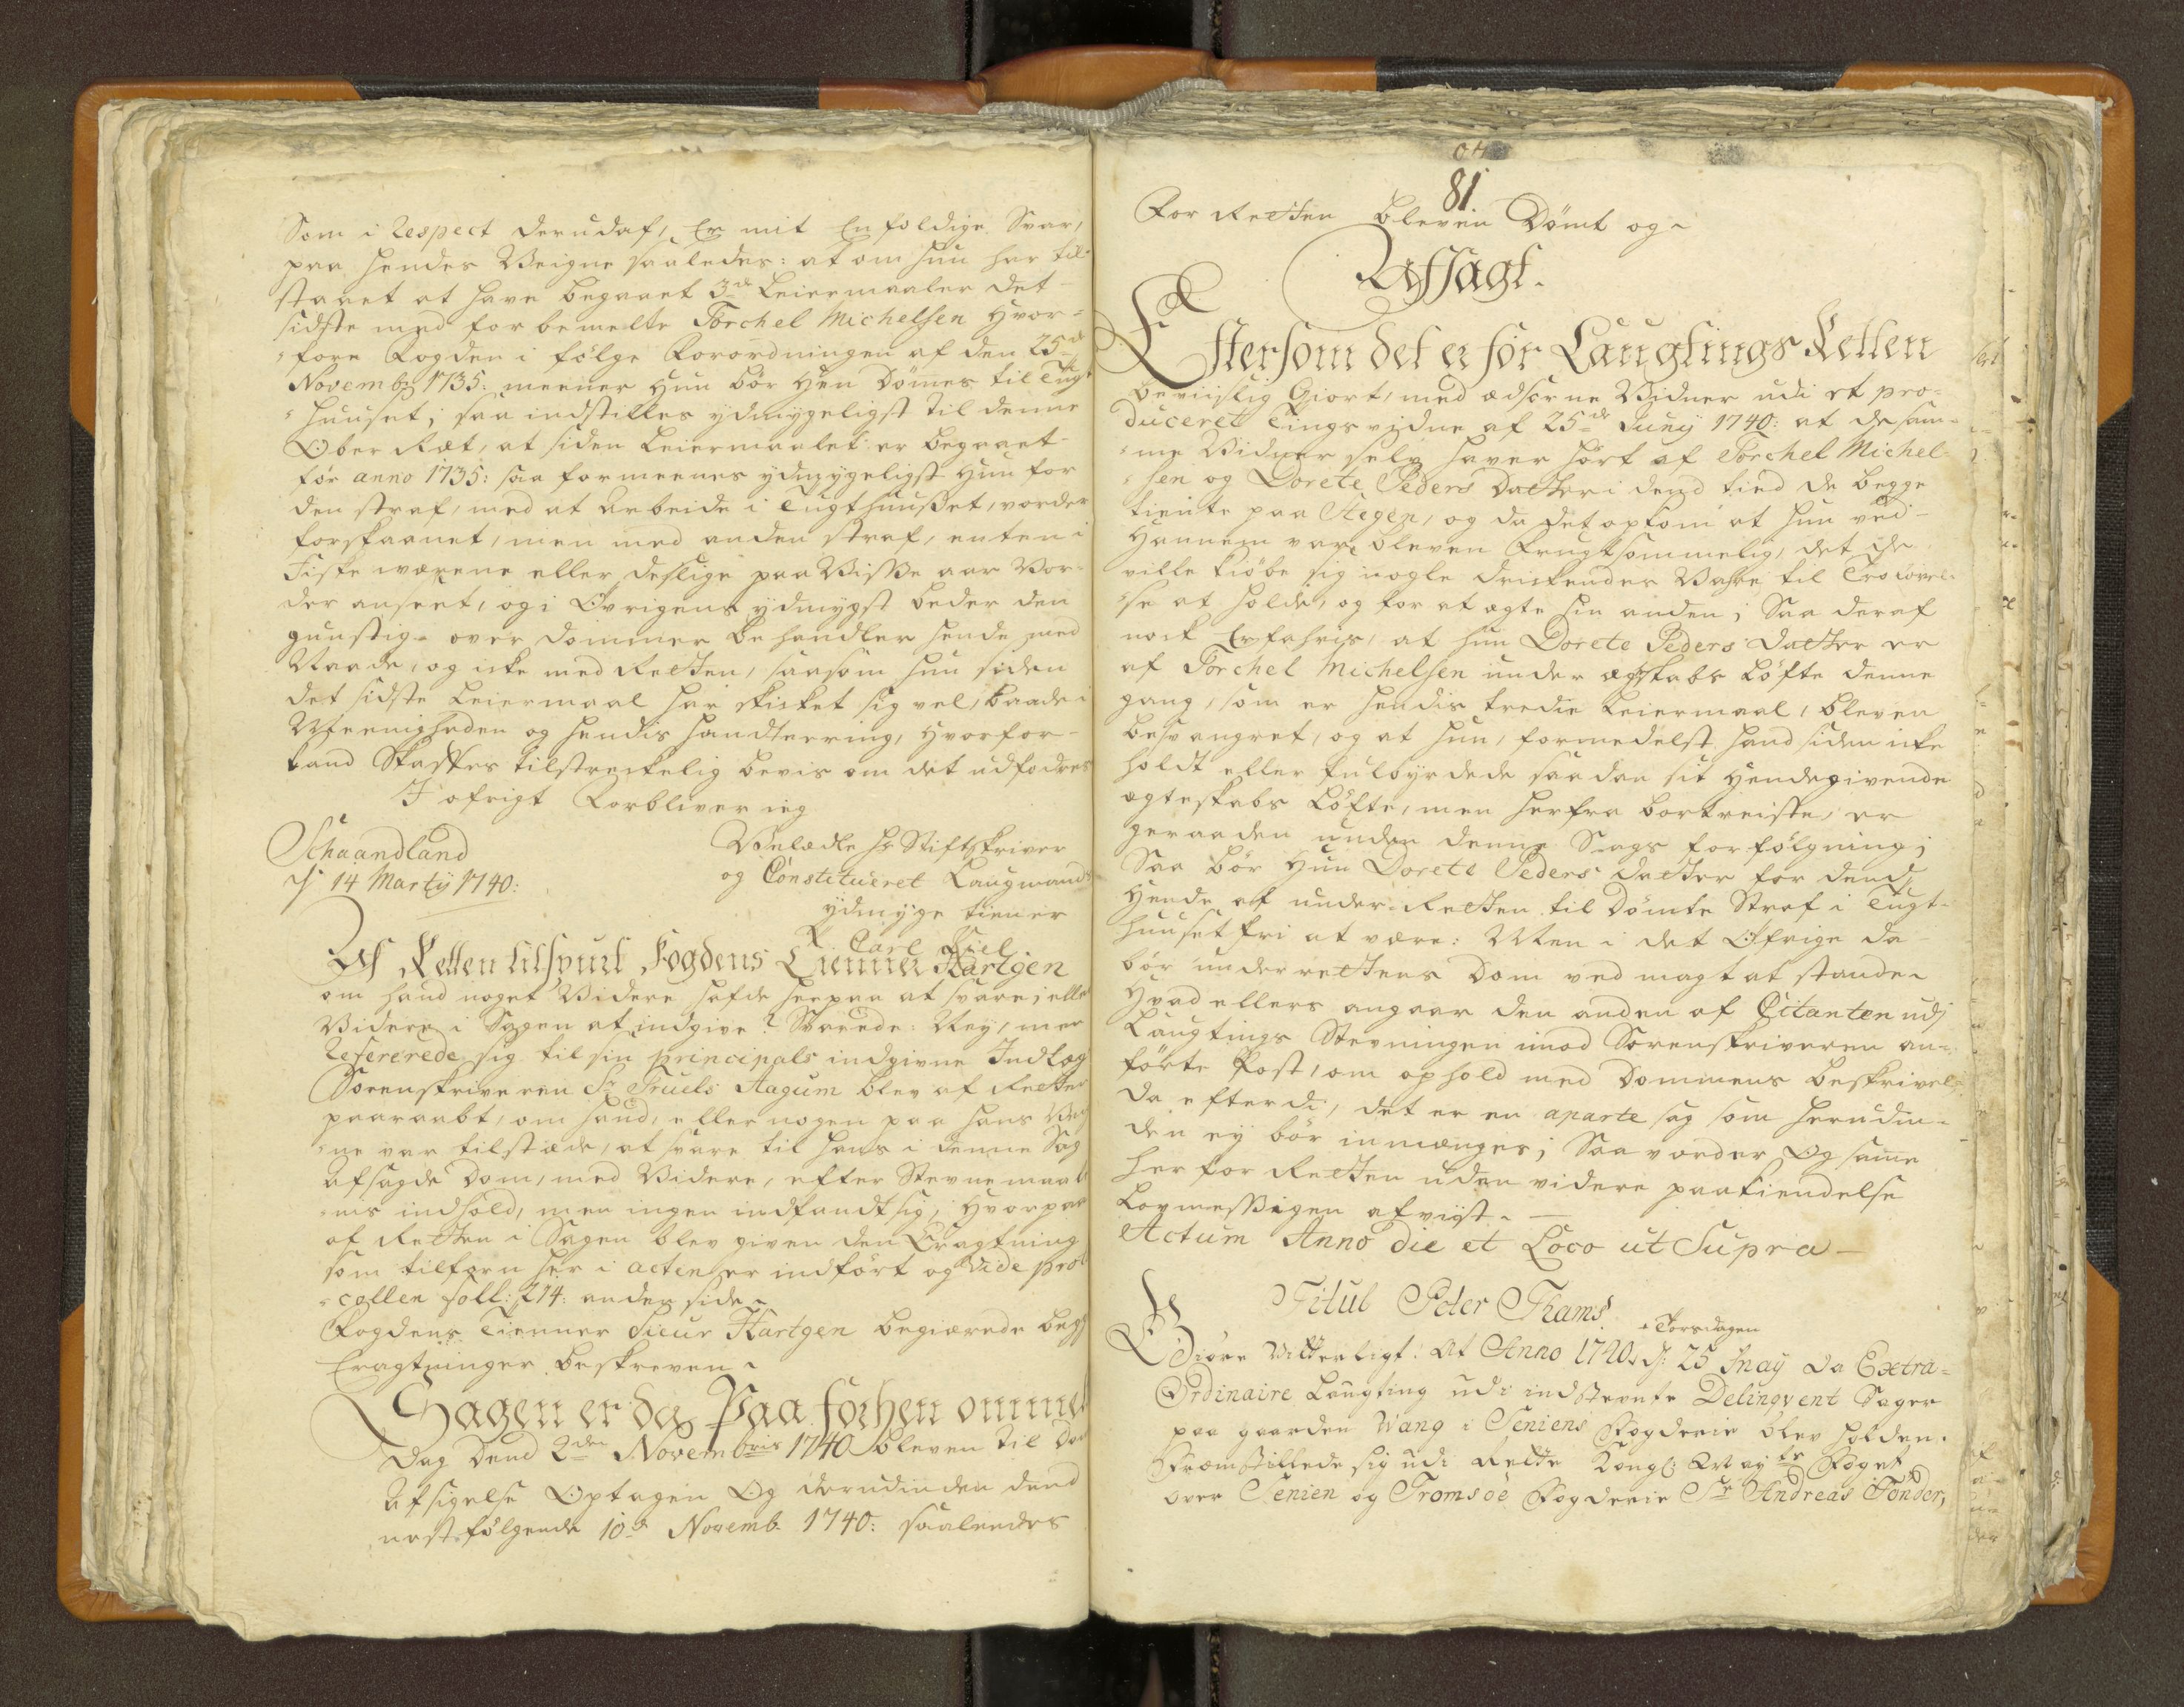 Som i Respect derudaf, Er mit Enfoldige Svar,
paa hendes Veigne saaledes: at om hun har til-
staaet at have begaaet 3de Leiermaaler det
sidste med forbemelte Torchel Michelsen Hvor-
fore Fogden i følge Forordningen af den 25de
Novembr 1735: meener hun bør hen Dømmes til Tugt
huuset; saa indstilles ydmygeligst til denne
Ober Ræt, at siden Leiermaalet er begaaet
før anno 1735: saa formeenes ydmygeligst hun for
den straf, med at arbeide i Tugthuusset, vorder
forskaanet, men med anden straf, enten i
Fiske værene eller deslige paa Visse aar Vor-
der anseet, og i Øvrigens ydmygst beder den
gunstige over dommer behandler hende med
Naade, og icke med Retten, saasom hun siden
det sidste Leiermaal har skicket sig vel, baade i
Meenigheden og hendis handteering, hvorfor
kand Skaffes tilstreckelig bevis om det udfodres
I øfrigt Forbliver ieg
Schaandland
d 14 Martij 1740:
Velædle Hr Stiftskriver
og Constitueret Laugmands
ydmyge tiener
Carl Kiel
Af Retten tilspurt Fogdens Tienner Hartgen
om hand noget Videre hafde herpaa at svare, eller
Videre i Sagen at indgive? Svarede: Ney, men
Refererede sig til sin principals indgivne Indlæg
Sorenskriveren Sr Truels Aagum blev af Retten
paaraabt, om hand, eller nogen paa hans Veg
ne var tilstæde, at svare til hans i denne Sag
Afsagde Dom, med Videre, efter Stevnemaale
ns indhold, men ingen indfandt sig, Hvorpaa
af Retten i Sagen blev given den Eragtning
som tilforn her i acten er indført og vide proto
collen foll: 214: anden side
Fogdens Tienner Sieur Hartgen begiærede begge
Eragtninger beskreven
Sagen er da Paa forhen ommel
Dag Dend 2den Novembris 1740 bleven til Dom
Afsigelse Optagen Og derudinden dend
nestfølgende 10de Novemb. 1740: saaleedes
81
For Retten bleven Dømt og
Afsagt.
Eftersom det er for Laugtings Retten
beviislig Giort, med edsorne Vidner udi et pro-
duceret Tingsvidne af 25de Juny 1740: at de sam-
me Vidner selv haver hørt af Torchel Michel-
sen og Dorete Peders Datter i dend tied de begge
tiente paa Stegen, og da det opkom at hun ved
Hannem var bleven Frugtsommelig, det de
ville kiøbe sig nogle drickendes Vahre til Trolovel-
se at holde, og for at ægte hin anden; Saa deraf
nock Erfahris, at hun Dorete Peders datter er
af Torchel Michelsen under ægteskabs Løfte denne
gang, som er hendis tredie Leiermaal, bleven
besvangret, og at hun, formedelst hand siden icke
holdt eller fulbyrdede saadan sit Hendegivende
ægteskabs Løfte, men herfra bortreiste, er
geraaden under denne Sags forfølgning;
Saa bør hun Dorete Peders datter for dend,
Hende af under Retten til Dømte Straf i Tugt-
huuset fri at være: Men i det Øfrige da
bør underrettens Dom ved magt at stande
Hvad ellers angaar den anden af Citanten udj
Laugtings Stevningen imod Sorenskriveren an-
førte Post, om ophold med Dommens beskrivel
da efterdi, det er en aparte sag som herudin-
den ey bør inmænges; Saa vorder Og samme
her for Retten uden videre paakiendelse
Lovmessigen afvist.
Actum Anno die et Loco ut Supra
Titul Peter Thams
Torsdagen
Giøre Vitterligt: At Anno 1740 d: 25 May da Extra-
Ordinaire Laugting udi indstevnte Delinqvent Sager
paa gaarden Wang i Seniens Fogderie blev holden.
Fremstillede sig udi Rette Kongl: May:ts Foget
over Senien og Tromsøe Fogderie Sr Andreas Tønder,